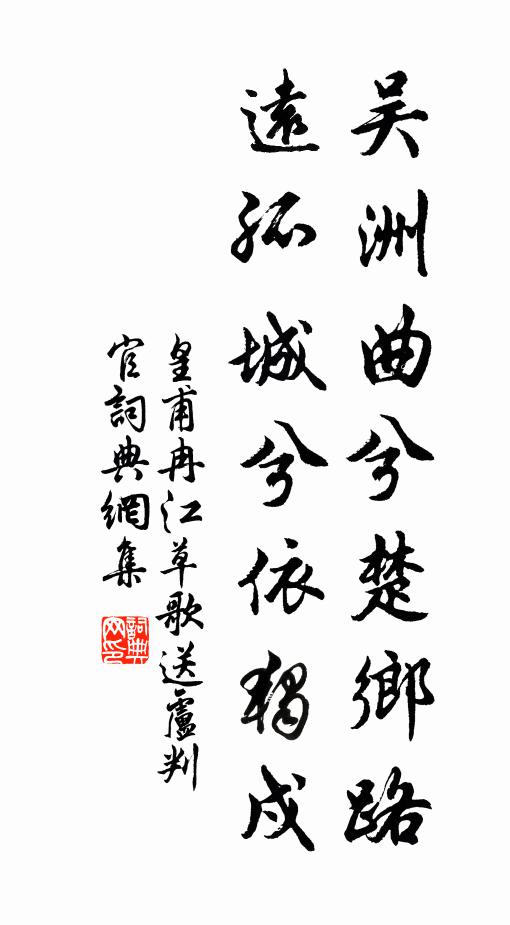 吴洲曲兮楚鄉路
遠孤城兮依獨戍
皇甫冉江草歌送盧判
官詞典網集
詞典
网印